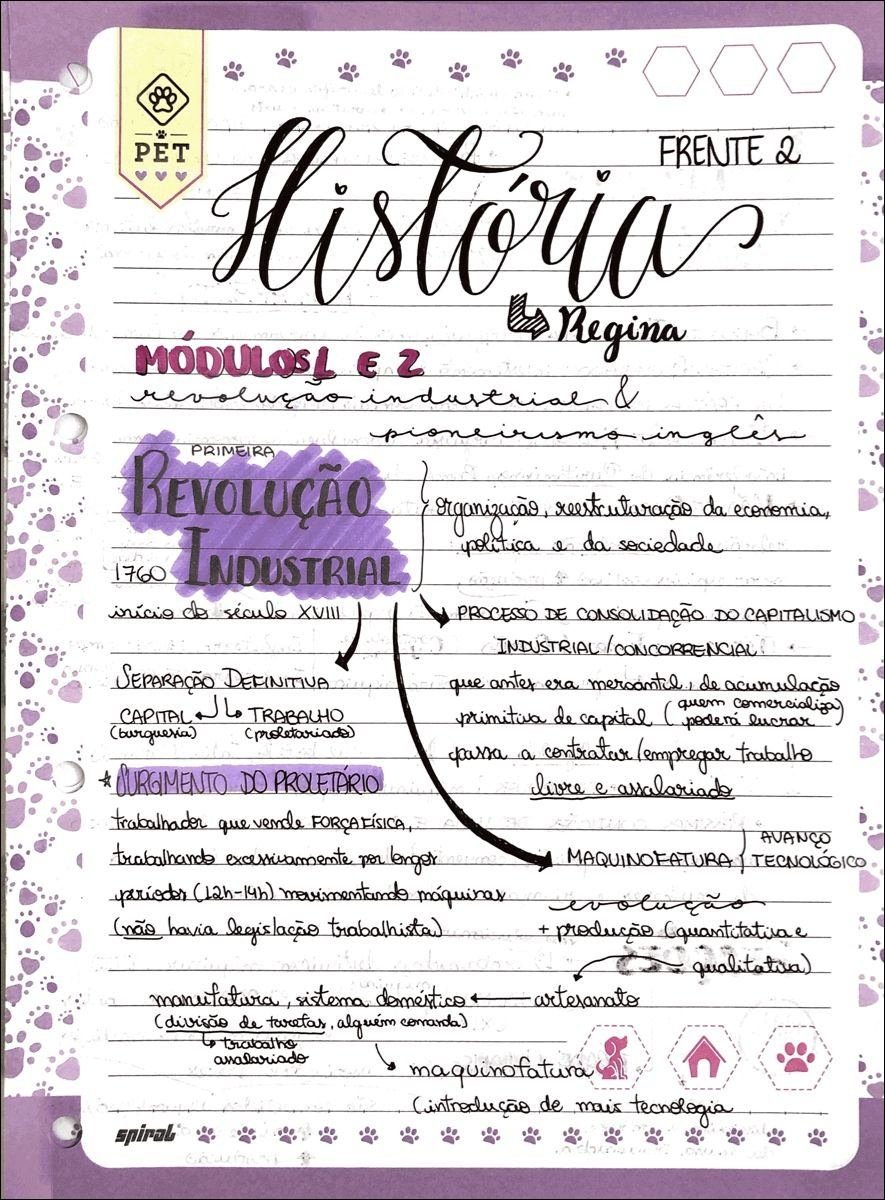 PET
FRENTE 2
História
Regina
MÓDULOS 1 E 2
revolução industrial &
pioneirismo inglês
PRIMEIRA
REVOLUÇÃO
INDUSTRIAL
1760
início do século XVIII
organização, reestruturação da economia,
política e da sociedade
PROCESSO DE CONSOLIDAÇÃO DO CAPITALISMO
INDUSTRIAL / CONCORRENCIAL
que antes era mercantil, de acumulação
primitiva de capital (quem comercializa
poderá lucrar)
passa a contratar/empregar trabalho
livre e assalariado
SEPARAÇÃO DEFINITIVA
CAPITAL TRABALHO
(burguesia) (proletariado)
SURGIMENTO DO PROLETÁRIO
trabalhador que vende FORÇA FÍSICA,
trabalhando excessivamente por longos
períodos (12h-14h) movimentando máquinas
(não havia legislação trabalhista)
MAQUINOFATURA
AVANÇO
TECNOLÓGICO
evolução
+ produção (quantitativa e
qualitativa)
manufatura, sistema doméstico artesanato
(divisão de tarefas, alguém comanda)
trabalho
assalariado
maquinofatura
(introdução de mais tecnologia
spiral